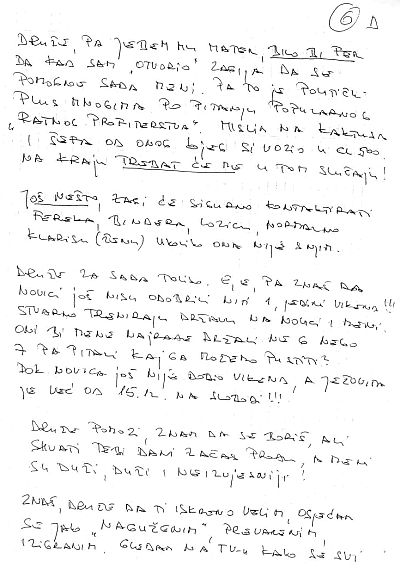 6 D
DRUŽE, PA JEBEM MU MATER, BILO BI FER
DA KAD SAM „OTVORIO" ZAGIJA DA SE
POMOGNE SADA MENI. PA TO JE POLITIČKI
PLUS MNOGIMA PO PITANJU POPULARNOG
„RATNOG PROFITERSTVA". MISLIM NA KAKTUSA
I ŠEPA OD ONOG KOJEG SI VOZIO U CL 500.
NA KRAJU TREBAT ĆE ME U TOM SLUČAJU!
JOŠ NEŠTO, ZAGI ĆE SIGURNO KONTAKTIRATI
PERSKA, BINDERA, LOZICU, NORMALNO
KLARISU (ŽENU) UKOLIKO ONA NIJE S NJIM.
DRUŽE ZA SADA TOLIKO. E, JE, PA ZNAŠ DA
NOVICI JOŠ NISU ODOBRILI NITI 1, JEDINI VIKEND!!!
STVARNO TRENIRAJU DRŽAVU NA NOVICI I MENI.
ONI BI MENE NAJRAĐE DRŽALI NE 6 NEGO
7 PA PITALI KAJ GA MOŽEMO PUSTITI?
DOK NOVICA JOŠ NIJE DOBIO VIKEND, A JEŽOVITA
JE VEĆ OD 15.12. NA SLOBODI!!!
DRUŽE POMOZI, ZNAM DA SE BORIŠ, ALI
SHVATI TEBI DANI ZAČAS PROĐU, A MENI
SU DUŽI, DUŽI I NEIZVJESNIJI!
ZNAŠ, DRUŽE DA TI ISKRENO VELIM, OSJEĆAM
SE JAKO „NAGUŽENIM", PREVARENIM,
IZIGRANIM. GLEDAM NA TV-U KAKO SE SVI